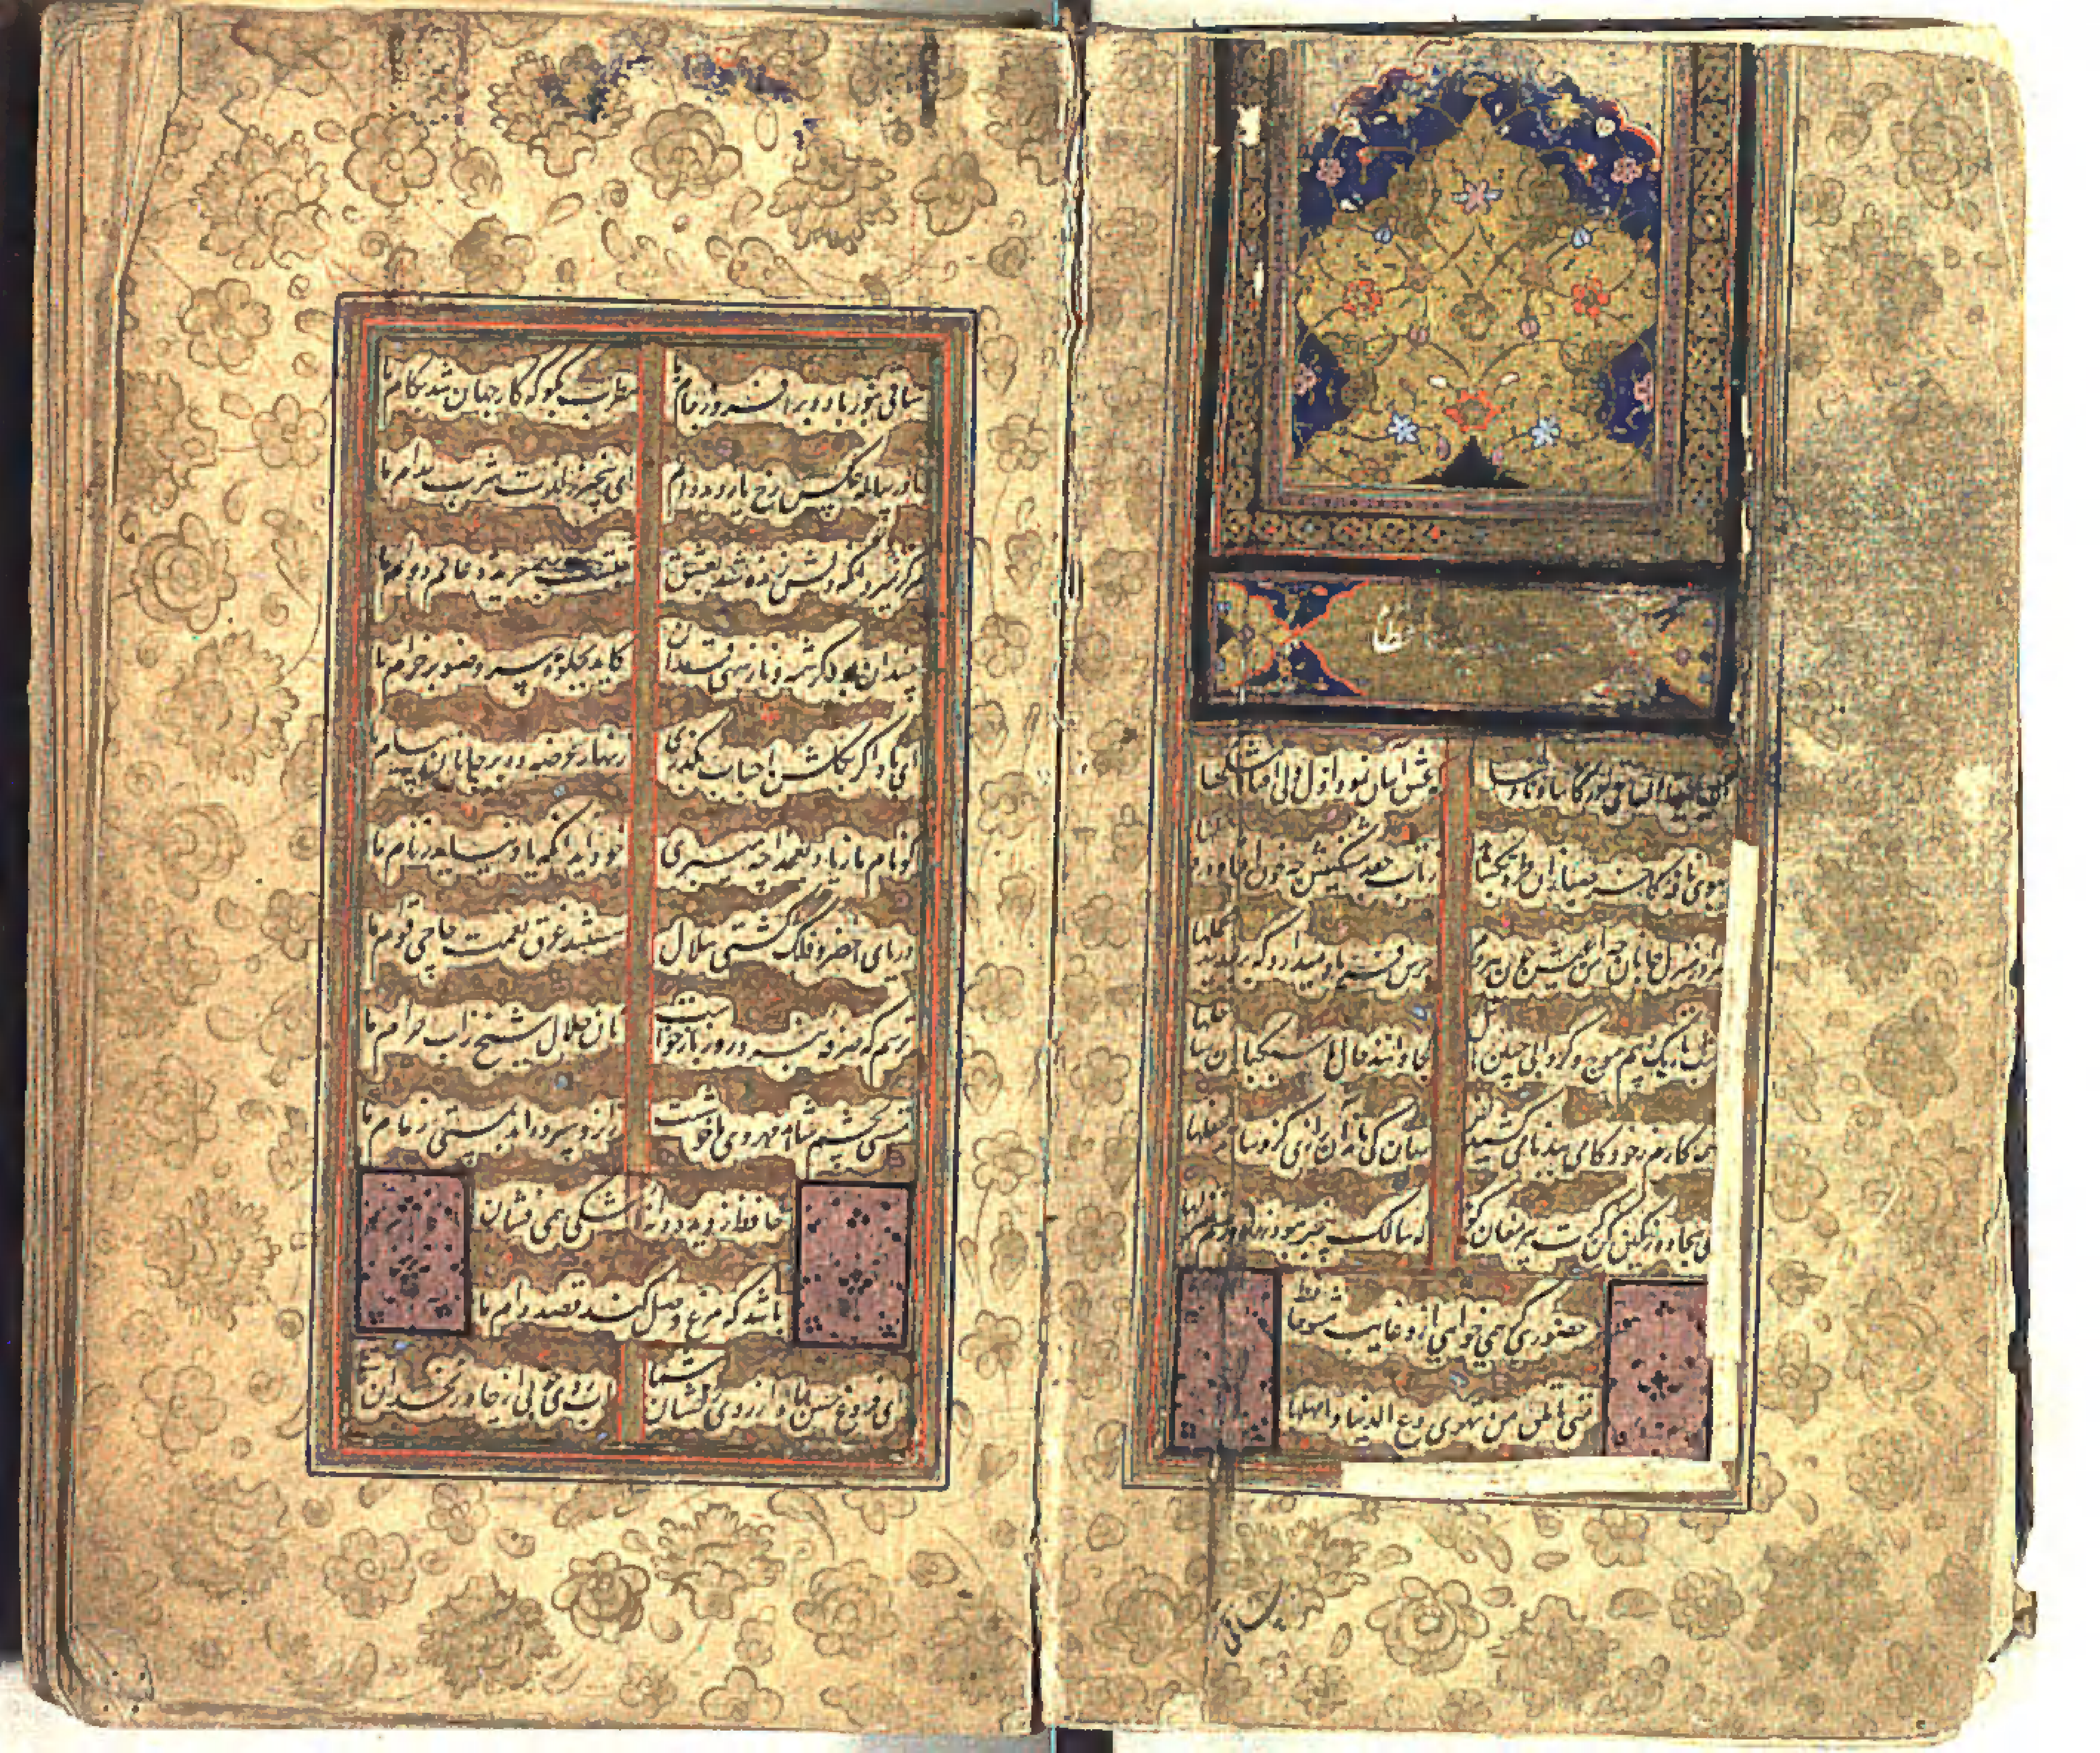 الا یا ایها الساقی ادر کاسا و ناولها که عشق آسان نمود اول ولی افتاد مشکلها
ببوی نافه کاخر صبا زان طره بگشاید ز تاب جعد مشکینش چه خون افتاد در دلها
مرا در منزل جانان چه امن عیش چون هر دم جرس فریاد میدارد که بربندید محملها
شب تاریک و بیم موج و گردابی چنین هایل کجا دانند حال ما سبکباران ساحلها
همه کارم ز خود کامی ببدنامی کشید آخر نهان کی ماند آن رازی کزو سازند محفلها
بمی سجاده رنگین کن گرت پیر مغان گوید که سالک بیخبر نبود ز راه و رسم منزلها
حضوری گر همی خواهی ازو غایب مشو حافظ
متی ما تلق من تهوی دع الدنیا و اهملها
ساقی
ساقی بنور باده برافروز جام ما مطرب بگو که کار جهان شد بکام ما
ما در پیاله عکس رخ یار دیده ایم ای بیخبر ز لذت شرب مدام ما
هرگز نمیرد آنکه دلش زنده شد بعشق ثبتست بر جریده عالم دوام ما
چندان بود کرشمه و ناز سهی قدان کاید بجلوه سرو صنوبر خرام ما
ای باد اگر بگلشن احباب بگذری زنهار عرضه ده بر جانان پیام ما
گو نام ما ز یاد بعمدا چه میبری خود آید آنکه یاد نیاید ز نام ما
دریای اخضر و فلک کشتی هلال هستند غرق نعمت حاجی قوام ما
ترسم که صرفه نبرد روز بازخواست نان حلال شیخ ز آب حرام ما
مستی بچشم شاهد مهروی ما خوشست زانرو سپرده اند بمستی زمام ما
حافظ ز دیده دانه اشکی همی فشان
باشد که مرغ وصل کند قصد دام ما
ای فروغ حسن ماه از روی رخشان شما آب روی خوبی از چاه زنخدان شما